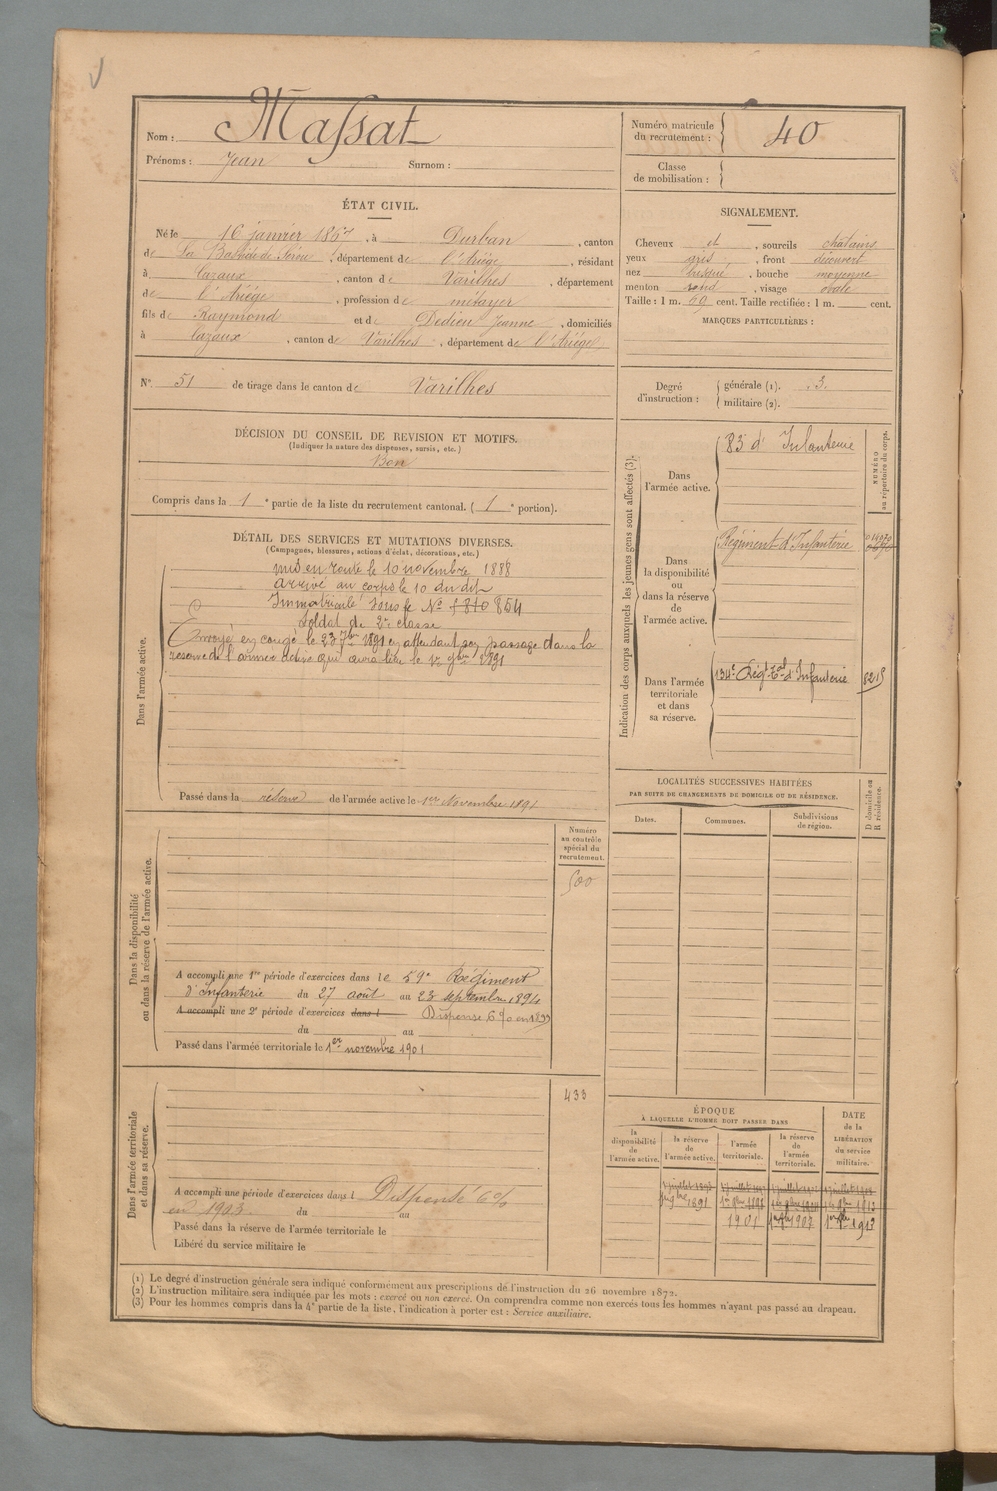 Nom : Massat
Prénoms : Jean Surnom :
Numéro matricule du recrutement : 40
Classe de mobilisation :
ÉTAT CIVIL.
Né le 16 janvier 1867, à Durban, canton
de La Bastide de Sérou, département de l'Ariége, résidant
à Cazaux, canton de Varilhes, département
de l'Ariége, profession de métayer
fils de Raymond et de Dedieu Jeanne, domiciliés
à Cazaux, canton de Varilhes, département de l'Ariége
SIGNALEMENT.
Cheveux et, sourcils châtains
yeux gris, front découvert
nez busqué, bouche moyenne
menton rond, visage ovale
Taille : 1 m. 69 cent. Taille rectifiée : 1 m. cent.
MARQUES PARTICULIÈRES :
N° 51 de tirage dans le canton de Varilhes
Degré d'instruction : générale (1). 3.
militaire (2).
DÉCISION DU CONSEIL DE REVISION ET MOTIFS.
(Indiquer la nature des dispenses, sursis, etc.)
Bon
Compris dans la 1e partie de la liste du recrutement cantonal. ( 1e portion).
DÉTAIL DES SERVICES ET MUTATIONS DIVERSES.
(Campagnes, blessures, actions d'éclat, décorations, etc.)
Dans l'armée active.
mis en route le 10 novembre 1888
arrivé au corps le 10 du dit
Immatriculé sous le N° 854
Soldat de 2e classe
Envoyé en congé le 23 7bre 1891 en attendant son passage dans la
réserve de l'armée active qui aura lieu le 1er 9bre 1891
Passé dans la réserve de l'armée active le 1er Novembre 1891
Indication des corps auxquels les jeunes gens sont affectés (3).
NUMÉRO au répertoire du corps.
Dans l'armée active.
83 d'Infanterie
Dans la disponibilité ou dans la réserve de l'armée active.
Régiment d'Infanterie
Dans l'armée territoriale et dans sa réserve.
134e Régt tal d'Infanterie 8215
LOCALITÉS SUCCESSIVES HABITÉES
PAR SUITE DE CHANGEMENTS DE DOMICILE OU DE RÉSIDENCE.
Dates. Communes. Subdivisions de région. D domicile ou R résidence.
Dans la disponibilité ou dans la réserve de l'armée active.
Numéro au contrôle spécial du recrutement.
500
A accompli une 1re période d'exercices dans le 59e Régiment
d'Infanterie du 27 août au 23 septembre 1894
A accompli une 2e période d'exercices dans l Dispensé 6% en 1899
du au
Passé dans l'armée territoriale le 1er novembre 1901
Dans l'armée territoriale et dans sa réserve.
433
A accompli une période d'exercices dans l Dispensé 6%
en 1903 du au
Passé dans la réserve de l'armée territoriale le
Libéré du service militaire le
ÉPOQUE
À LAQUELLE L'HOMME DOIT PASSER DANS
la disponibilité de l'armée active.
la réserve de l'armée active.
l'armée territoriale.
la réserve de l'armée territoriale.
DATE de la LIBÉRATION du service militaire.
1er 9bre 1891
1901 1er 9bre 1907 1er 9bre 1913
(1) Le degré d'instruction générale sera indiqué conformément aux prescriptions de l'instruction du 26 novembre 1872.
(2) L'instruction militaire sera indiquée par les mots : exercé ou non exercé. On comprendra comme non exercés tous les hommes n'ayant pas passé au drapeau.
(3) Pour les hommes compris dans la 4e partie de la liste, l'indication à porter est : Service auxiliaire.